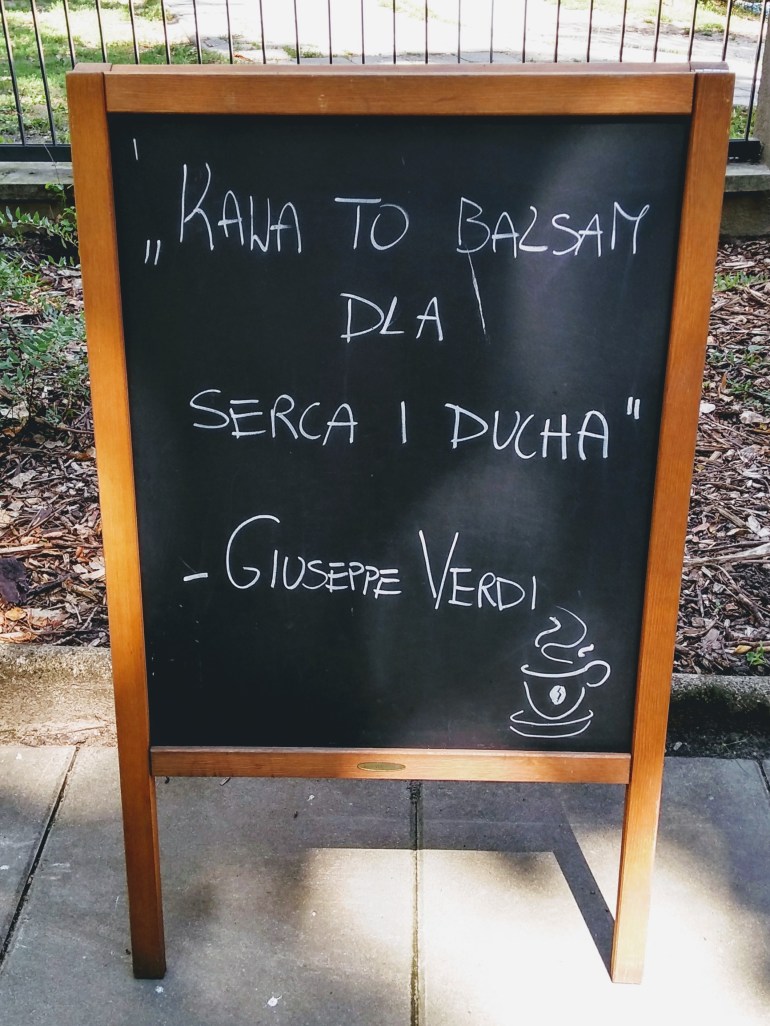 „KAWA TO BALSAM
DLA
SERCA I DUCHA"
- GIUSEPPE VERDI